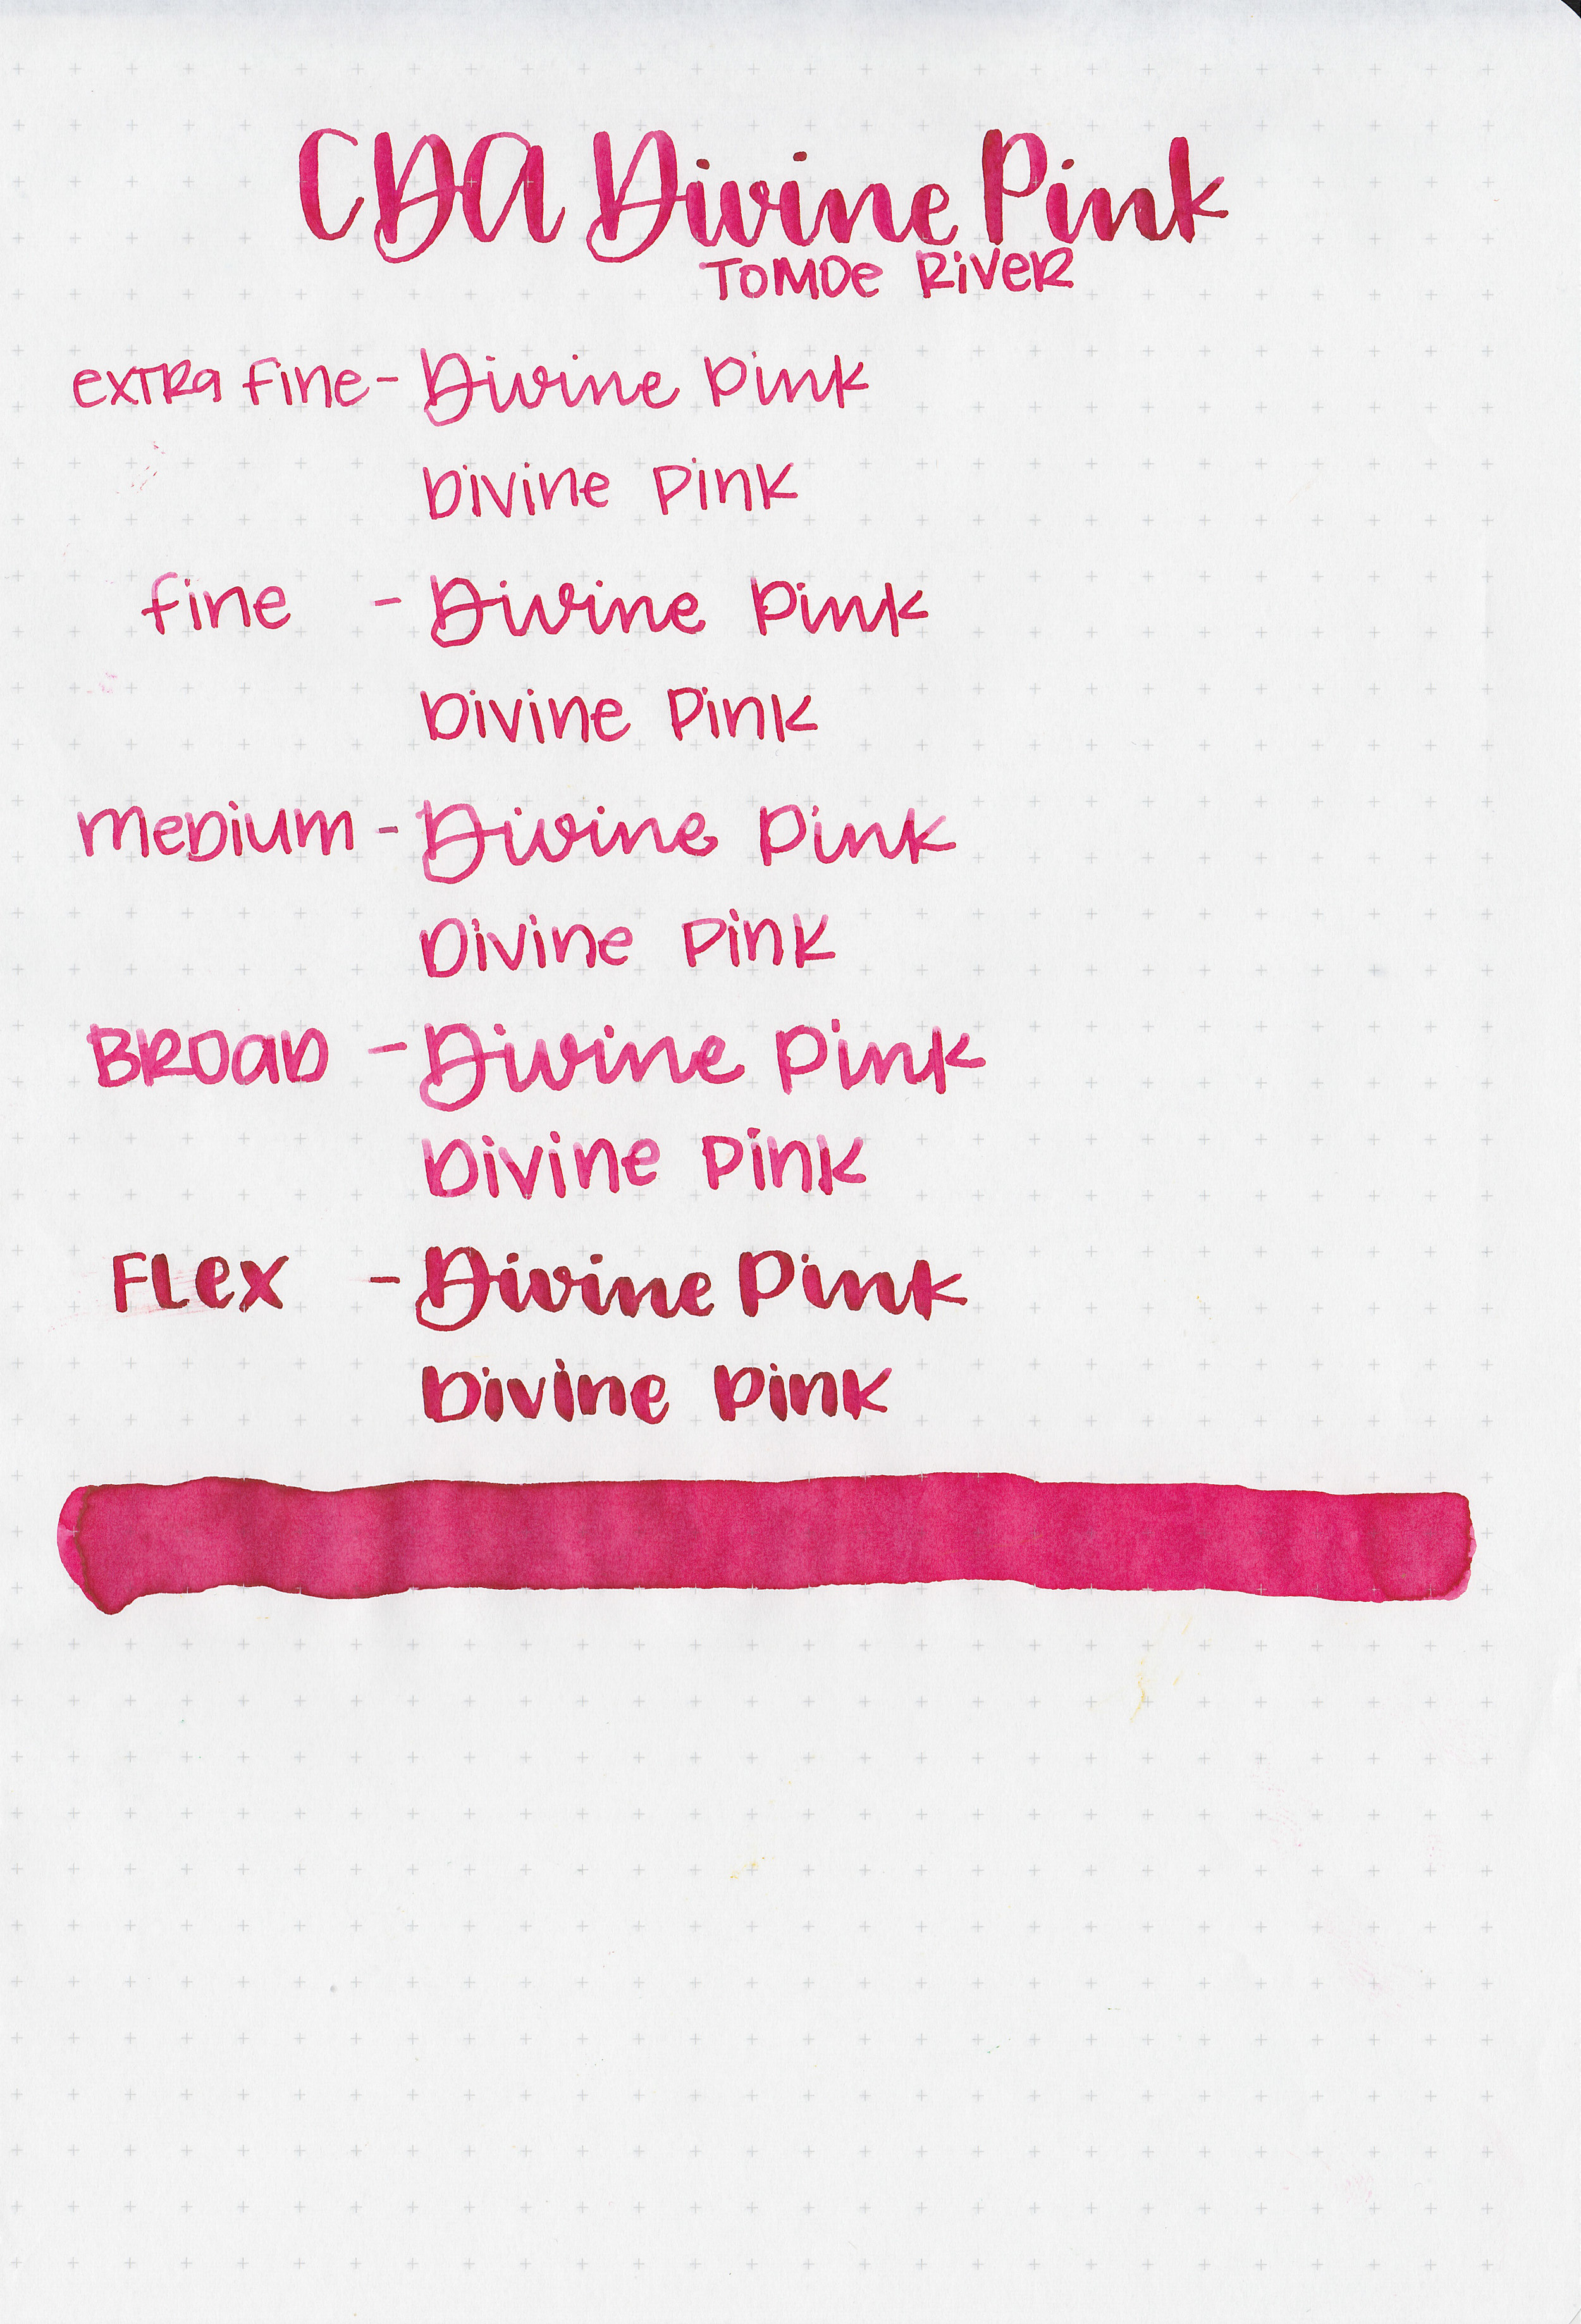 CDA Divine Pink
TOMOe RiveR
exTRa fine - Divine Pink
Divine Pink
fine - Divine Pink
Divine Pink
meDium - Divine Pink
Divine Pink
BROaD - Divine Pink
Divine Pink
FLex - Divine Pink
Divine Pink